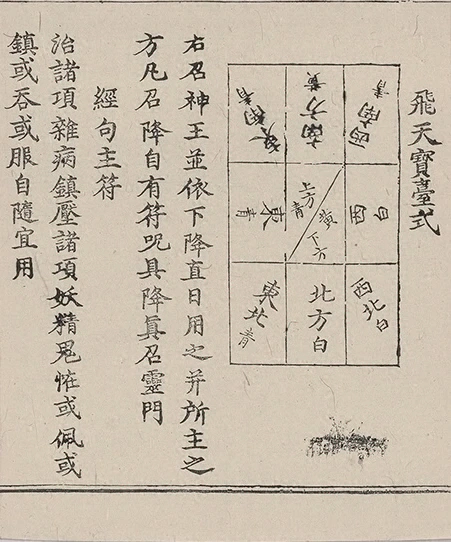 飛天寶臺式
西南青
南方黃
東南青
西白
上方青
黃下方
東青
西北白
北方白
東北青
右召神王並依下降直日用之并所主之
方凡召降自有符呪具降眞召靈門
經句主符
治諸項雜病鎮壓諸項妖精鬼恠或佩或
鎮或吞或服自隨宜用